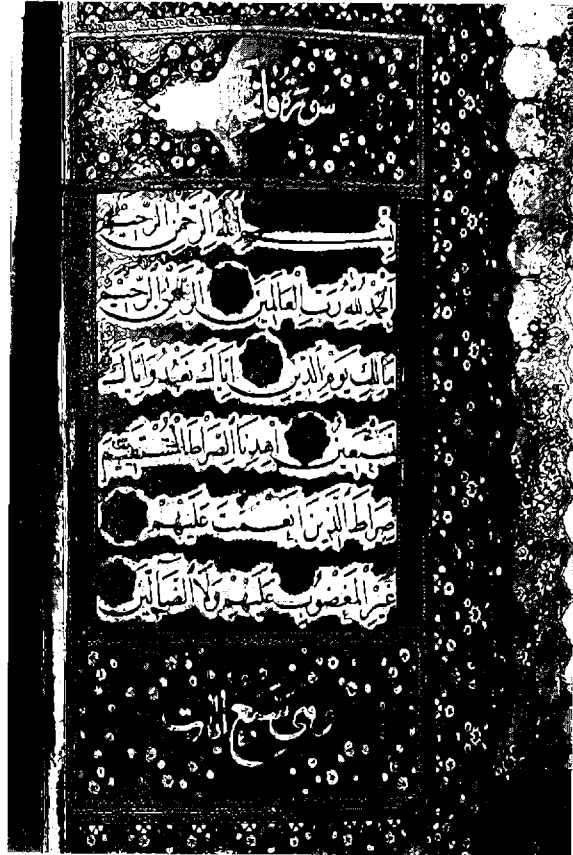 سورة فاتحة
بسم الله الرحمن الرحيم
الحمد لله رب العالمين الرحمن الرحيم
مالك يوم الدين اياك نعبد واياك
نستعين اهدنا الصراط المستقيم
صراط الذين انعمت عليهم
غير المغضوب عليهم ولا الضالين
وهي سبع ايات